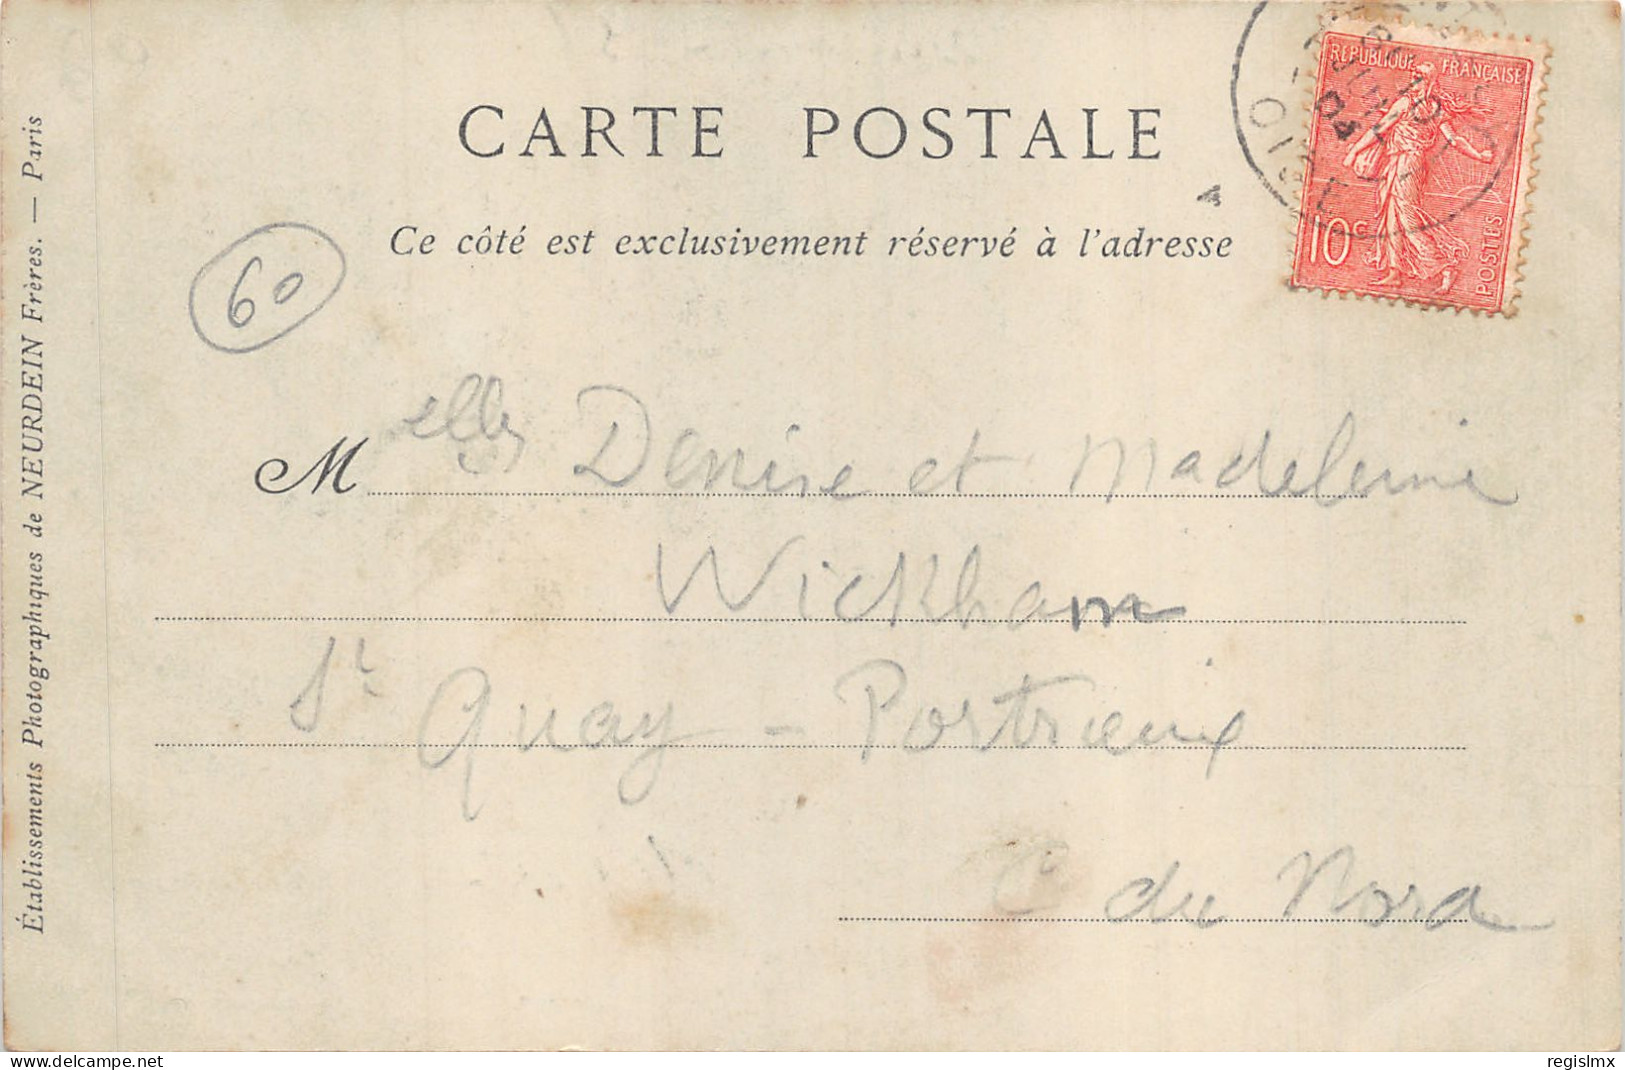 CARTE POSTALE
Ce côté est exclusivement réservé à l'adresse
RÉPUBLIQUE FRANÇAISE
10c POSTES
OISE
04
60
Melles Denise et Madeleine
Wickham
St Quay - Portrieux
C du Nord
Établissements Photographiques de NEURDEIN Frères. — Paris
www.delcampe.net
regislmx